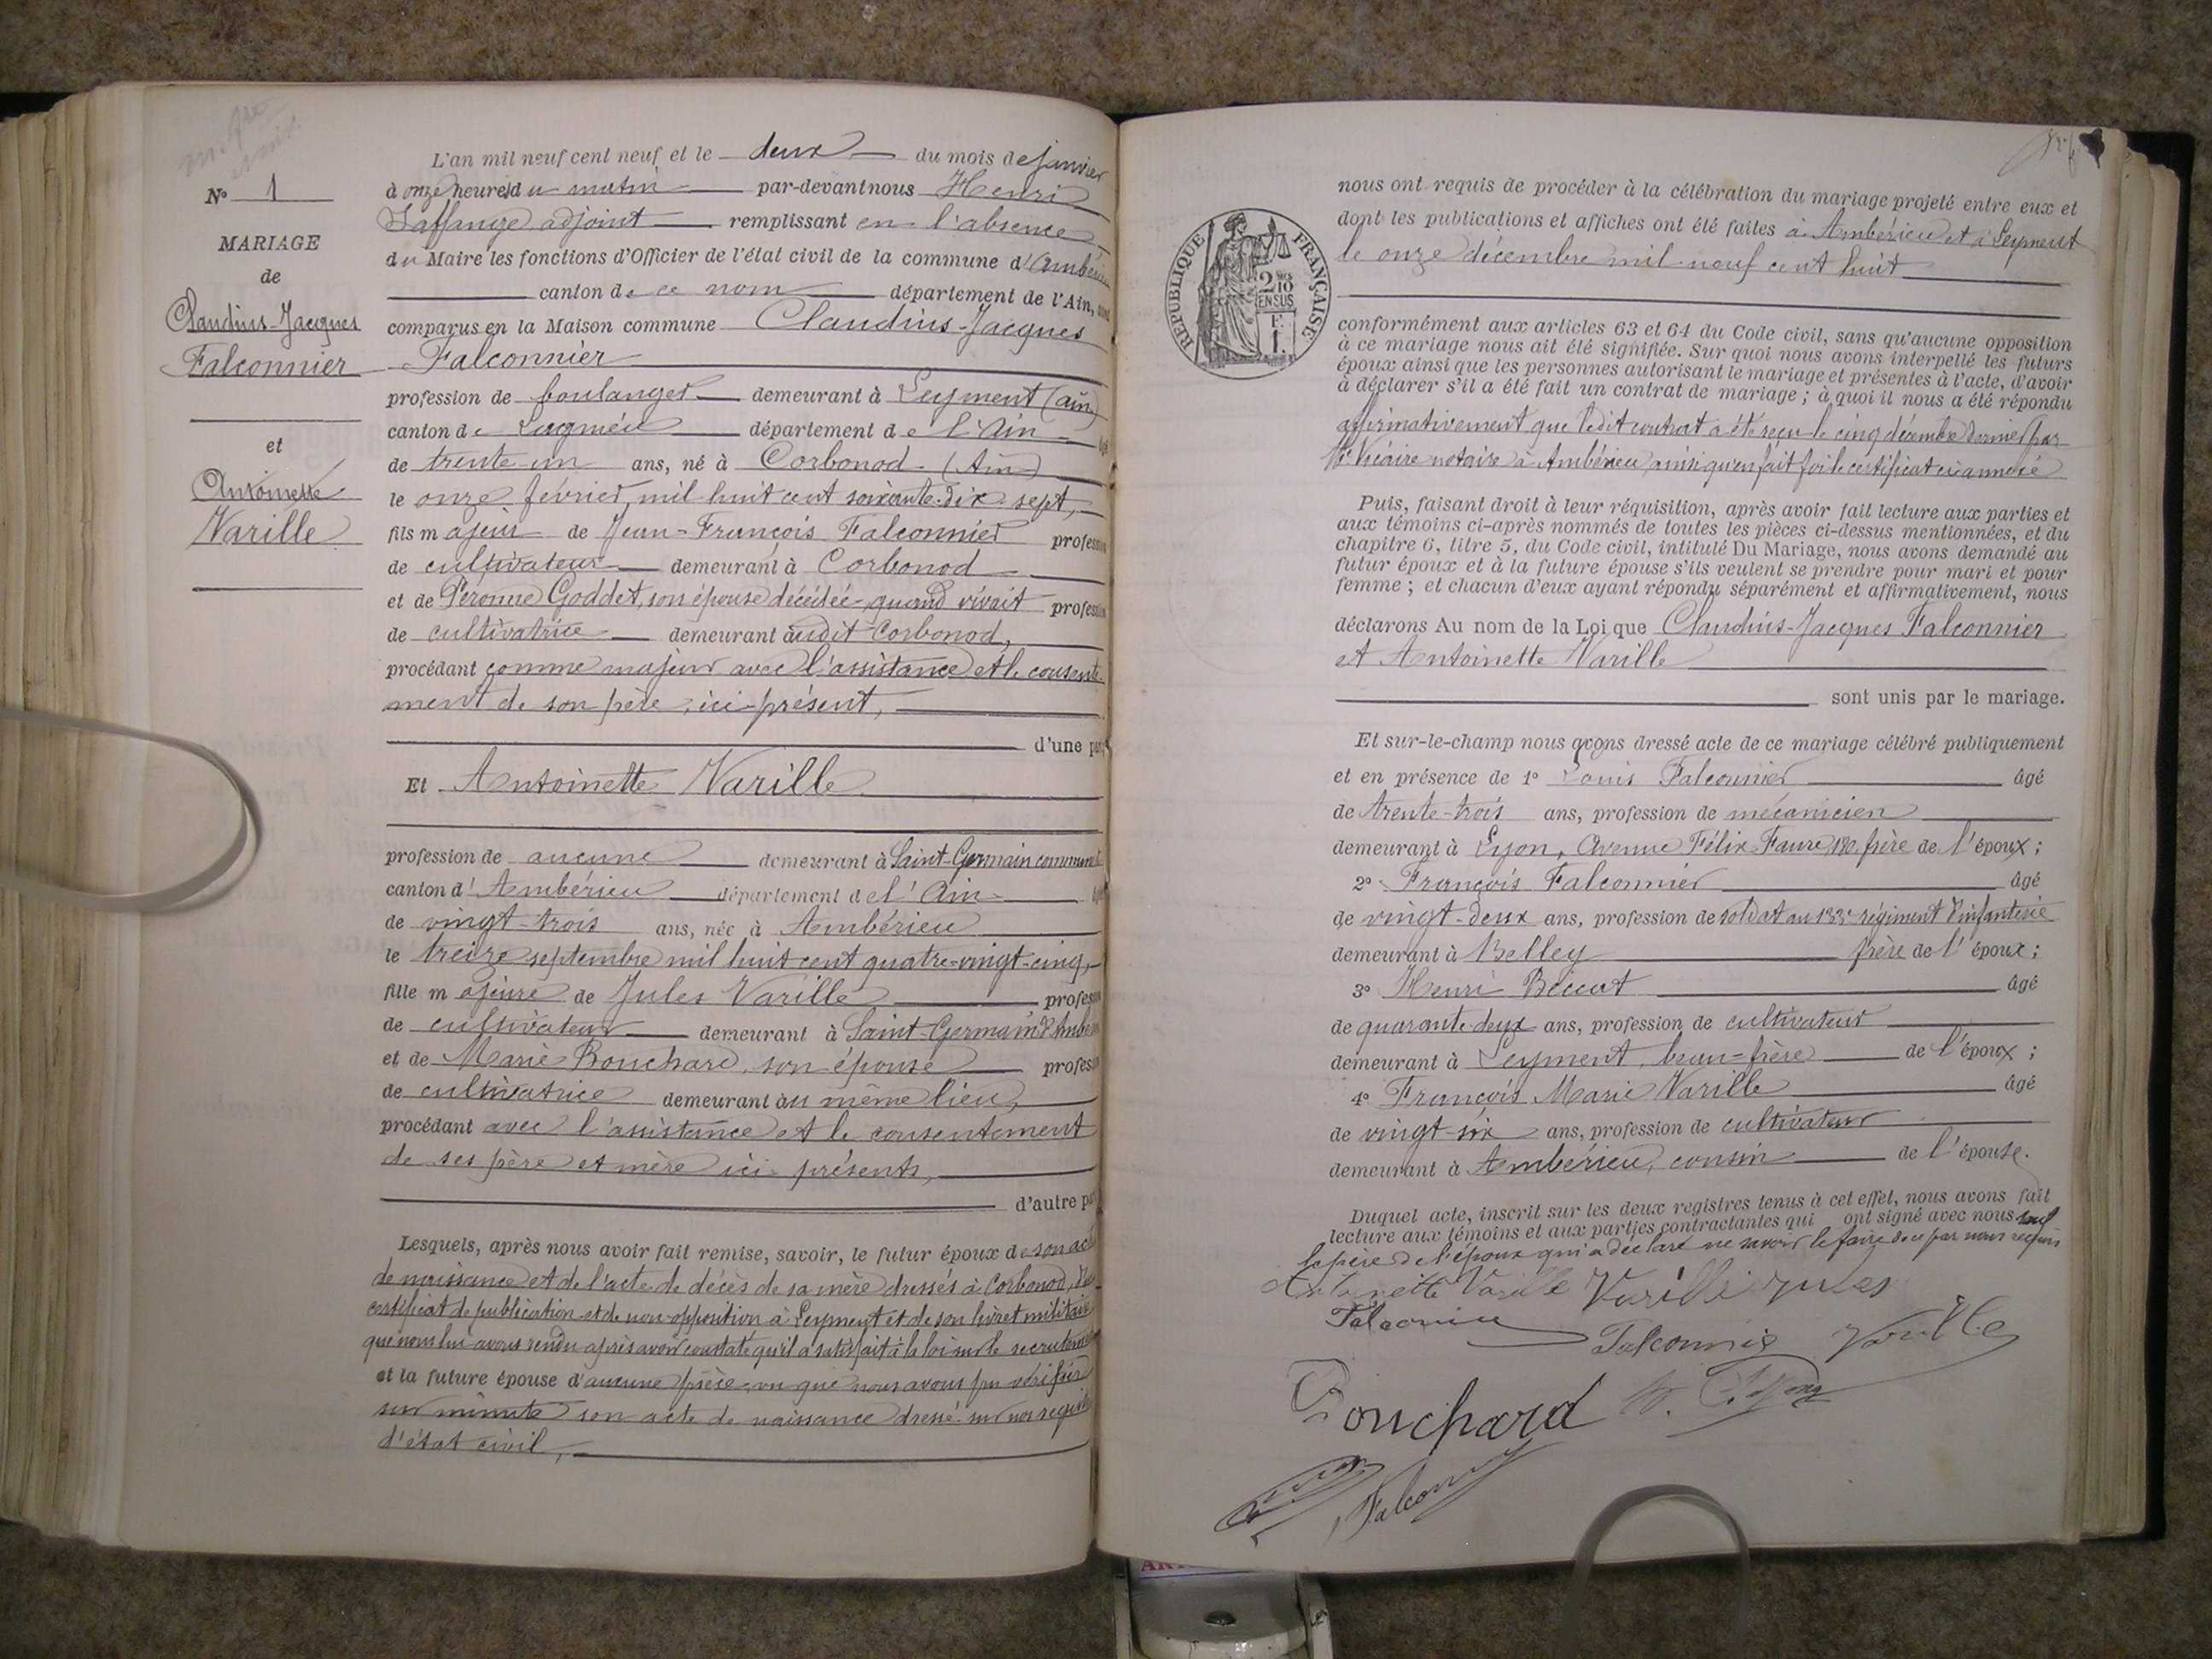 N° 1
MARIAGE
de
Claudius-Jacques
Falconnier
et
Antoinette
Varille
L'an mil neuf cent neuf et le deux du mois de janvier
à onze heures du matin par-devant nous Henri
adjoint remplissant en l'absence
du Maire les fonctions d'Officier de l'état civil de la commune d'Ambérieu
canton de ce nom département de l'Ain, sont
comparus en la Maison commune Claudius-Jacques
Falconnier
profession de boulanger demeurant à Leyment (Ain)
canton de Lagnieu département de l'Ain âgé
de trente-un ans, né à Corbonod (Ain)
le onze février mil huit cent soixante-dix-sept,
fils majeur de Jean-François Falconnier profession
de cultivateur demeurant à Corbonod
et de Péronne Goddet, son épouse décédée, quand vivait profession
de cultivatrice demeurant audit Corbonod,
procédant comme majeur avec l'assistance et le consente-
ment de son père, ici présent,
d'une part
Et Antoinette Varille
profession de aucune demeurant à Saint-Germain commune
canton d'Ambérieu département de l'Ain âgée
de vingt-trois ans, née à Ambérieu
le treize septembre mil huit cent quatre-vingt-cinq,
fille majeure de Jules Varille profession
de cultivateur demeurant à Saint-Germain d'Ambérieu
et de Marie Bouchard, son épouse profession
de cultivatrice demeurant au même lieu,
procédant avec l'assistance et le consentement
de ses père et mère ici présents,
d'autre part
Lesquels, après nous avoir fait remise, savoir, le futur époux de son acte
de naissance et de l'acte de décès de sa mère dressés à Corbonod, du
certificat de publication et de non-opposition à Leyment et de son livret militaire
que nous lui avons rendu après avoir constaté qu'il a satisfait à la loi sur le recrutement
et la future épouse d'aucune pièce, vu que nous avons pu vérifier
sur minute son acte de naissance dressé sur nos registres
d'état civil,
RÉPUBLIQUE FRANÇAISE
2/10
EN SUS
F.
1.
nous ont requis de procéder à la célébration du mariage projeté entre eux et
dont les publications et affiches ont été faites à Ambérieu et à Leyment
le onze décembre mil neuf cent huit
conformément aux articles 63 et 64 du Code civil, sans qu'aucune opposition
à ce mariage nous ait été signifiée. Sur quoi nous avons interpellé les futurs
époux ainsi que les personnes autorisant le mariage et présentes à l'acte, d'avoir
à déclarer s'il a été fait un contrat de mariage ; à quoi il nous a été répondu
affirmativement que ledit contrat a été reçu le cinq décembre dernier par
Me Vicaire notaire à Ambérieu ainsi qu'en fait foi le certificat ci-annexé
Puis, faisant droit à leur réquisition, après avoir fait lecture aux parties et
aux témoins ci-après nommés de toutes les pièces ci-dessus mentionnées, et du
chapitre 6, titre 5, du Code civil, intitulé Du Mariage, nous avons demandé au
futur époux et à la future épouse s'ils veulent se prendre pour mari et pour
femme ; et chacun d'eux ayant répondu séparément et affirmativement, nous
déclarons Au nom de la Loi que Claudius-Jacques Falconnier
et Antoinette Varille
sont unis par le mariage.
Et sur-le-champ nous avons dressé acte de ce mariage célébré publiquement
et en présence de 1° Louis Falconnier âgé
de trente-trois ans, profession de mécanicien
demeurant à Lyon, Avenue Félix Faure 180 frère de l'époux ;
2° François Falconnier âgé
de vingt-deux ans, profession de soldat au 133e régiment d'infanterie
demeurant à Belley frère de l'époux ;
3° Henri âgé
de quarante-deux ans, profession de cultivateur
demeurant à Leyment, beau-frère de l'époux ;
4° François Marie Varille âgé
de vingt-six ans, profession de cultivateur
demeurant à Ambérieu, cousin de l'épouse.
Duquel acte, inscrit sur les deux registres tenus à cet effet, nous avons fait
lecture aux témoins et aux parties contractantes qui ont signé avec nous sauf
le père de l'époux qui a déclaré ne savoir le faire de ce par nous requis
Antoinette Varille Varille Jules
Falconnier Falconnie Varille
Bouchard
Falconnier